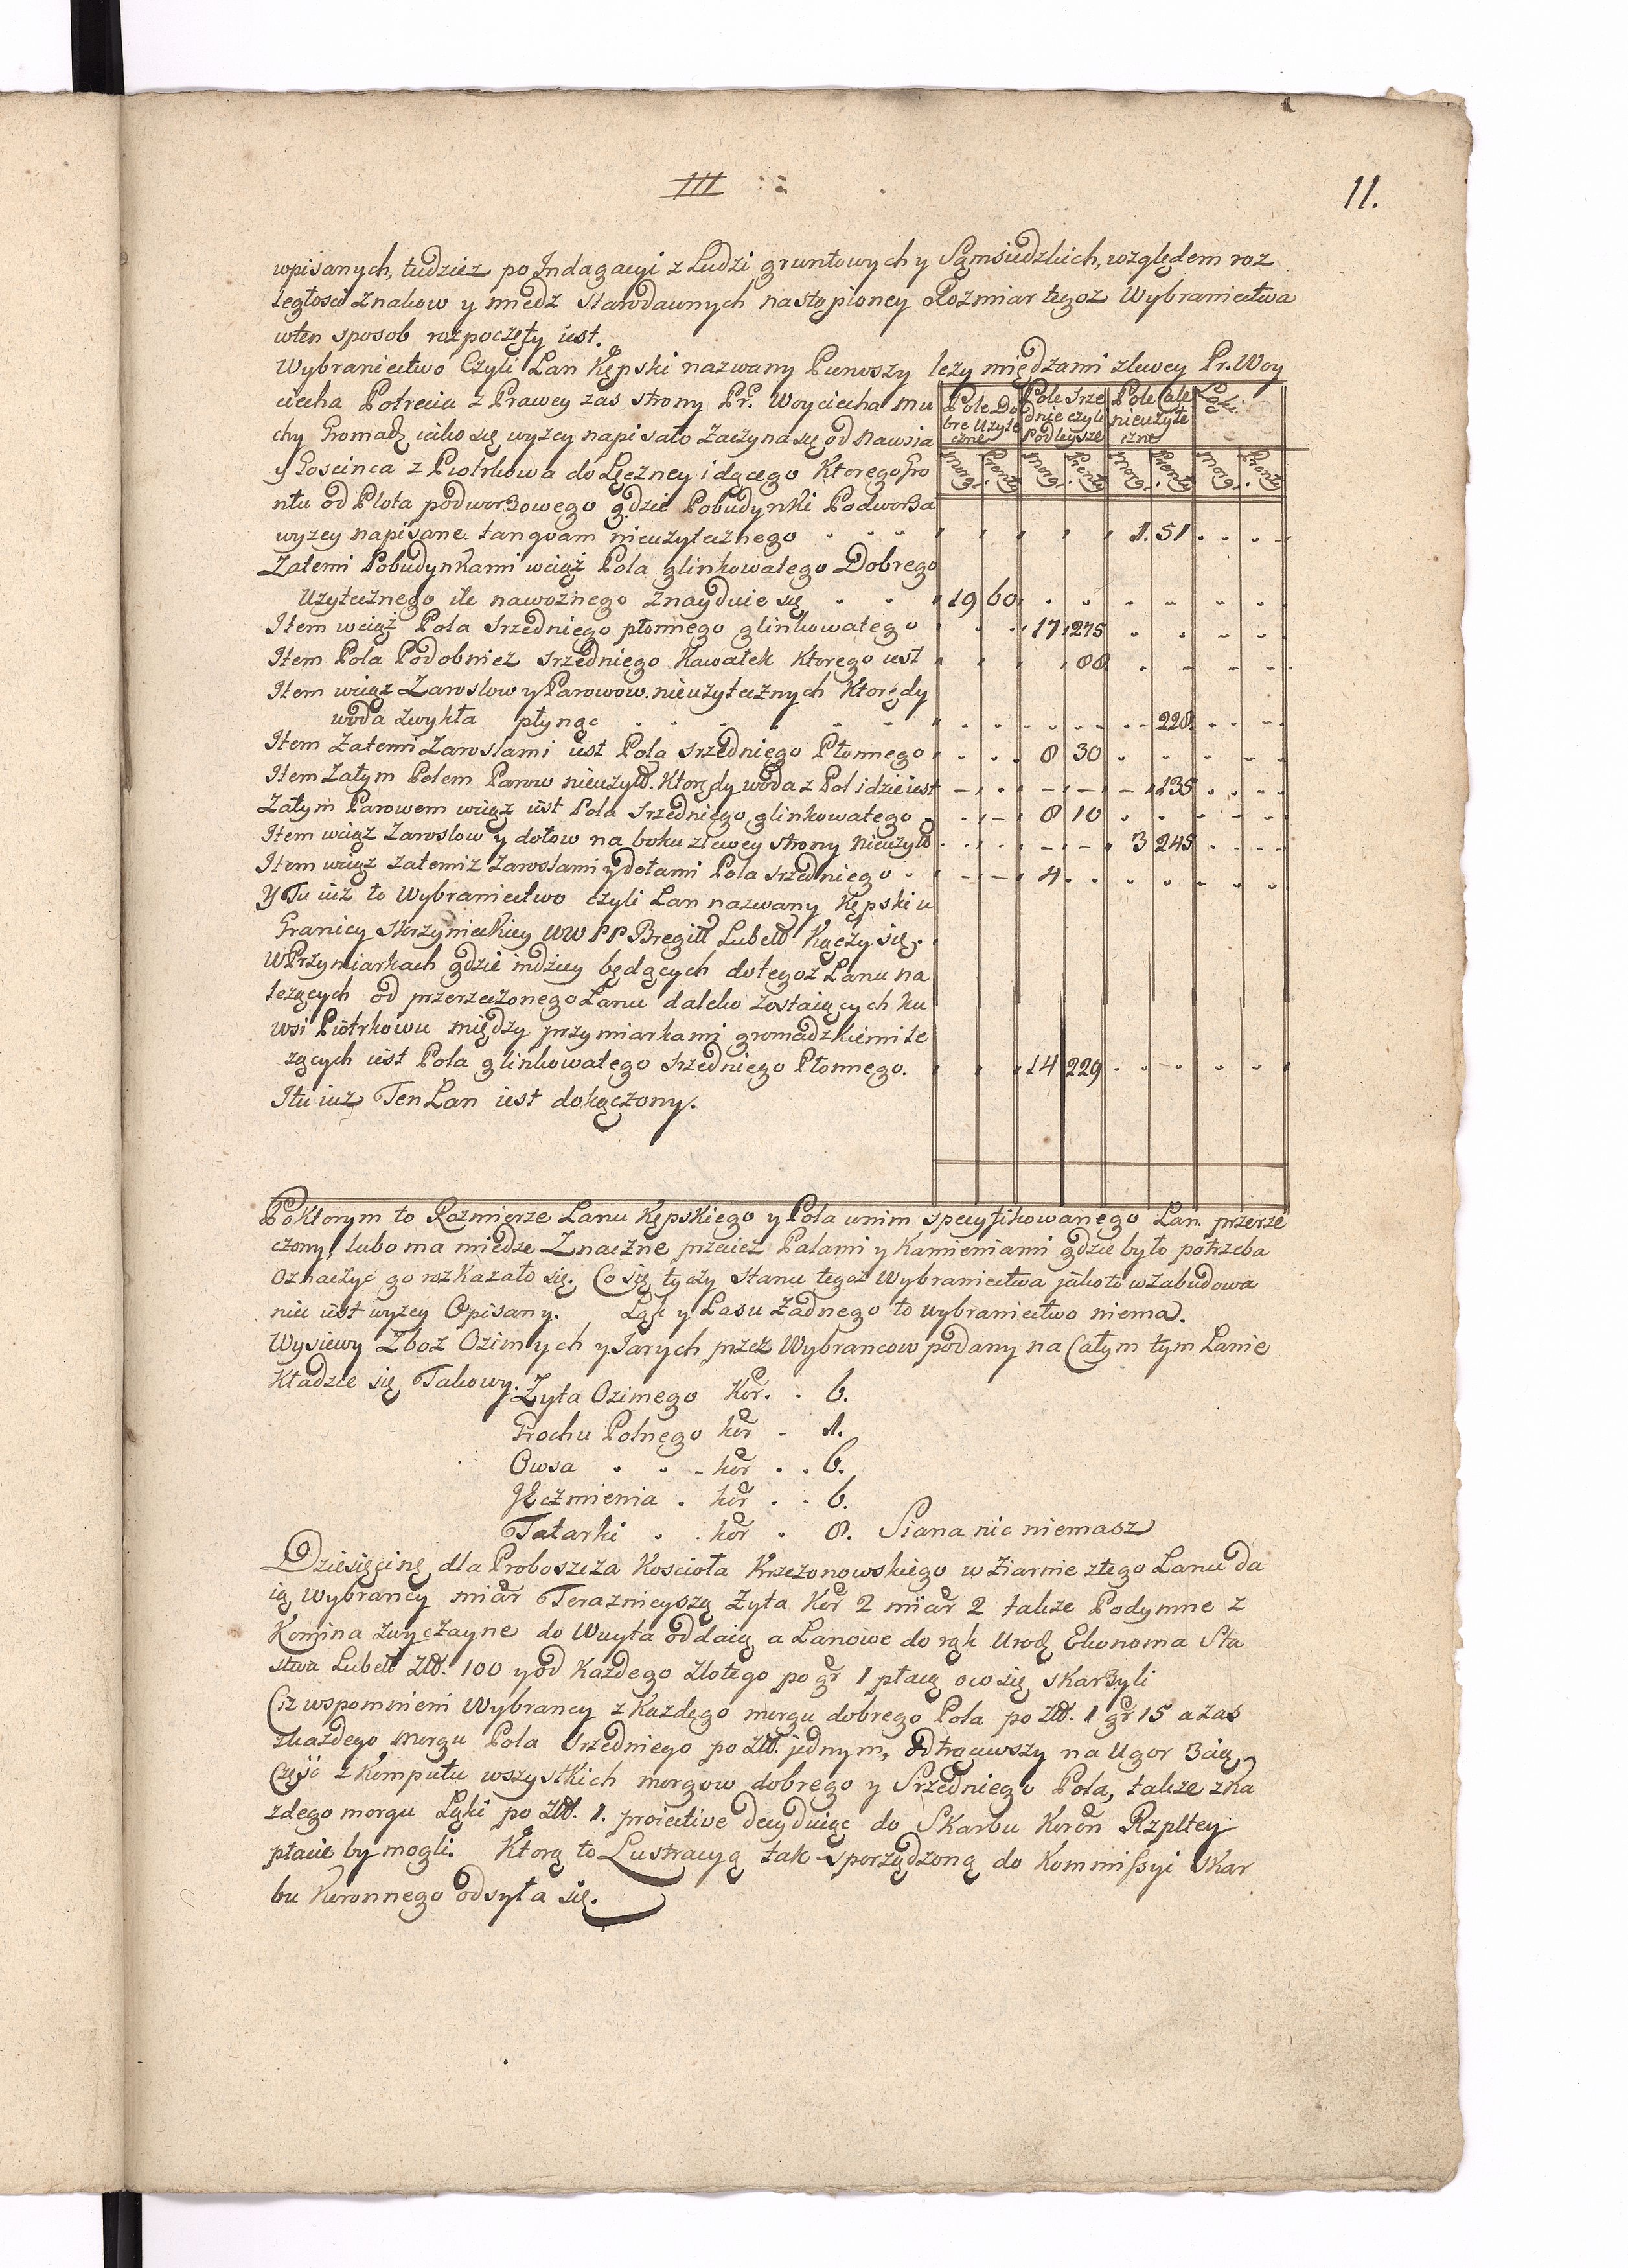 III
11.
wpisanych, tudziez po Indagacyi z Ludzi gruntowych y Sąmsiedzkich, względem roz
ległosci Znakow y miedz starodawnych nastąpioney Rozmiar tegoz Wybraniectwa
wten sposob rozpoczęty iest.
Wybraniectwo Czyli Lan Kępski nazwany Pierwszy lezy międzami zlewey Pr. Woy
ciecha Potrecia z Prawey zas strony Pr. Woyciecha Mu
chy Gromadz iako się wyzey napisało Zaczyna się od Nawsia
y Goscinca z Piotrkowa do Lęczney idącego Ktorego Gro
ntu od Płota podworzowego gdzie Pobudynki Podworza
Pole Do bre Uzyte czne
Pole Srze dnie czyli Podleysze
Pole Cale nieuzyte czne
Łąki
Morg. Pręty Morg. Pręty Morg. Pręty Morg. Pręty
wyzey napisane tanqvam nieuzytecznego 1. 51
Zatemi Pobudynkami wciąż Pola glinkowatego Dobrego
Uzytecznego ile nawoznego Znayduie się 19 60
Item wciąż Pola srzedniego płonnego glinkowatego 17 275
Item Pola Podobniez srzedniego Kawałek Ktorego iest 88
Item wciąz Zaroslow y Parowow nieuzytecznych Ktorędy
woda Zwykła płynąc 228
Item Zatemi Zaroslami iest Pola srzedniego Płonnego 8 30
Item Zatym Polem Parow nieuzyt. Ktorędy woda z Pol idzie iest 135
Zatym Parowem wciąż iest Pola srzedniego glinkowatego 8 10
Item wciąż Zaroslow y dołow na boku zlewey strony nieuzyt 3 245
Item wciąz zatemiz Zaroslami y dołami Pola srzedniego 4
Y Tu iuz to Wybraniectwo czyli Lan nazwany Kępski u
Granicy Skrzynieckiey WW PP Bregitt Lubell Kączy się.
W Przymiarkach gdzie indziey będących do tegoz Lanu na
lezących od przerzeczonego Lanu daleko zostaiących ku
wsi Piotrkowu między przymiarkami gromadzkiemi le
zących iest Pola glinkowatego srzedniego Płonnego. 14 229
I tu iuz Ten Lan iest dokączony.
Po Ktorym to Rozmierze Lanu Kępskiego y Pola wnim specyfikowanego Lan przerze
czony, lubo ma miedze Znaczne przeciez Palami y Kamieniami gdzie było potrzeba
Oznaczyć go rozkazało się. Co się tyczy Stanu tegoz Wybraniectwa jako to w Zabudowa
niu iest wyzey Opisany. Łąk y Lasu Zadnego to wybraniectwo niema.
Wysiewy Zboz Ozimych y Jarych przez Wybrancow podany na Całym tym Lanie
Kładzie się Takowy. Zyta Ozimego Kor. 6.
Grochu Polnego kor 1.
Owsa kor 6.
Jęczmienia kor 6.
Tatarki kor 8. Siana nic niemasz
Dziesięcinę dla Proboszcza Koscioła Krzczonowskiego w Ziarnie z tego Lanu da
ią Wybrancy miar Teraznieyszą Zyta Kor 2 miar 2 takze Podymne z
Komina zwyczayne do Woyta oddaią a Lanowe do rąk Urodz Ekonoma Sta
stwa Lubell Złł. 100 y od Kazdego Złotego po gr 1 płacą oco się skarzyli
Ciz wspomnieni Wybrancy z Kazdego morgu dobrego Pola po Złł. 1 gr 15 a zas
zkazdego morgu Pola Srzedniego po Złł. jednym, odtrąciwszy na Ugor 3cią
Część z Komputu wszystkich morgow dobrego y Srzedniego Pola, takze z Ka
zdego morgu Łąki po Złł. 1. proiective decyduiąc do Skarbu Koron Rzpltey
płacic by mogli. Ktorą to Lustracyą tak sporządzoną do Kommissyi Skar
bu Koronnego odsyła się.